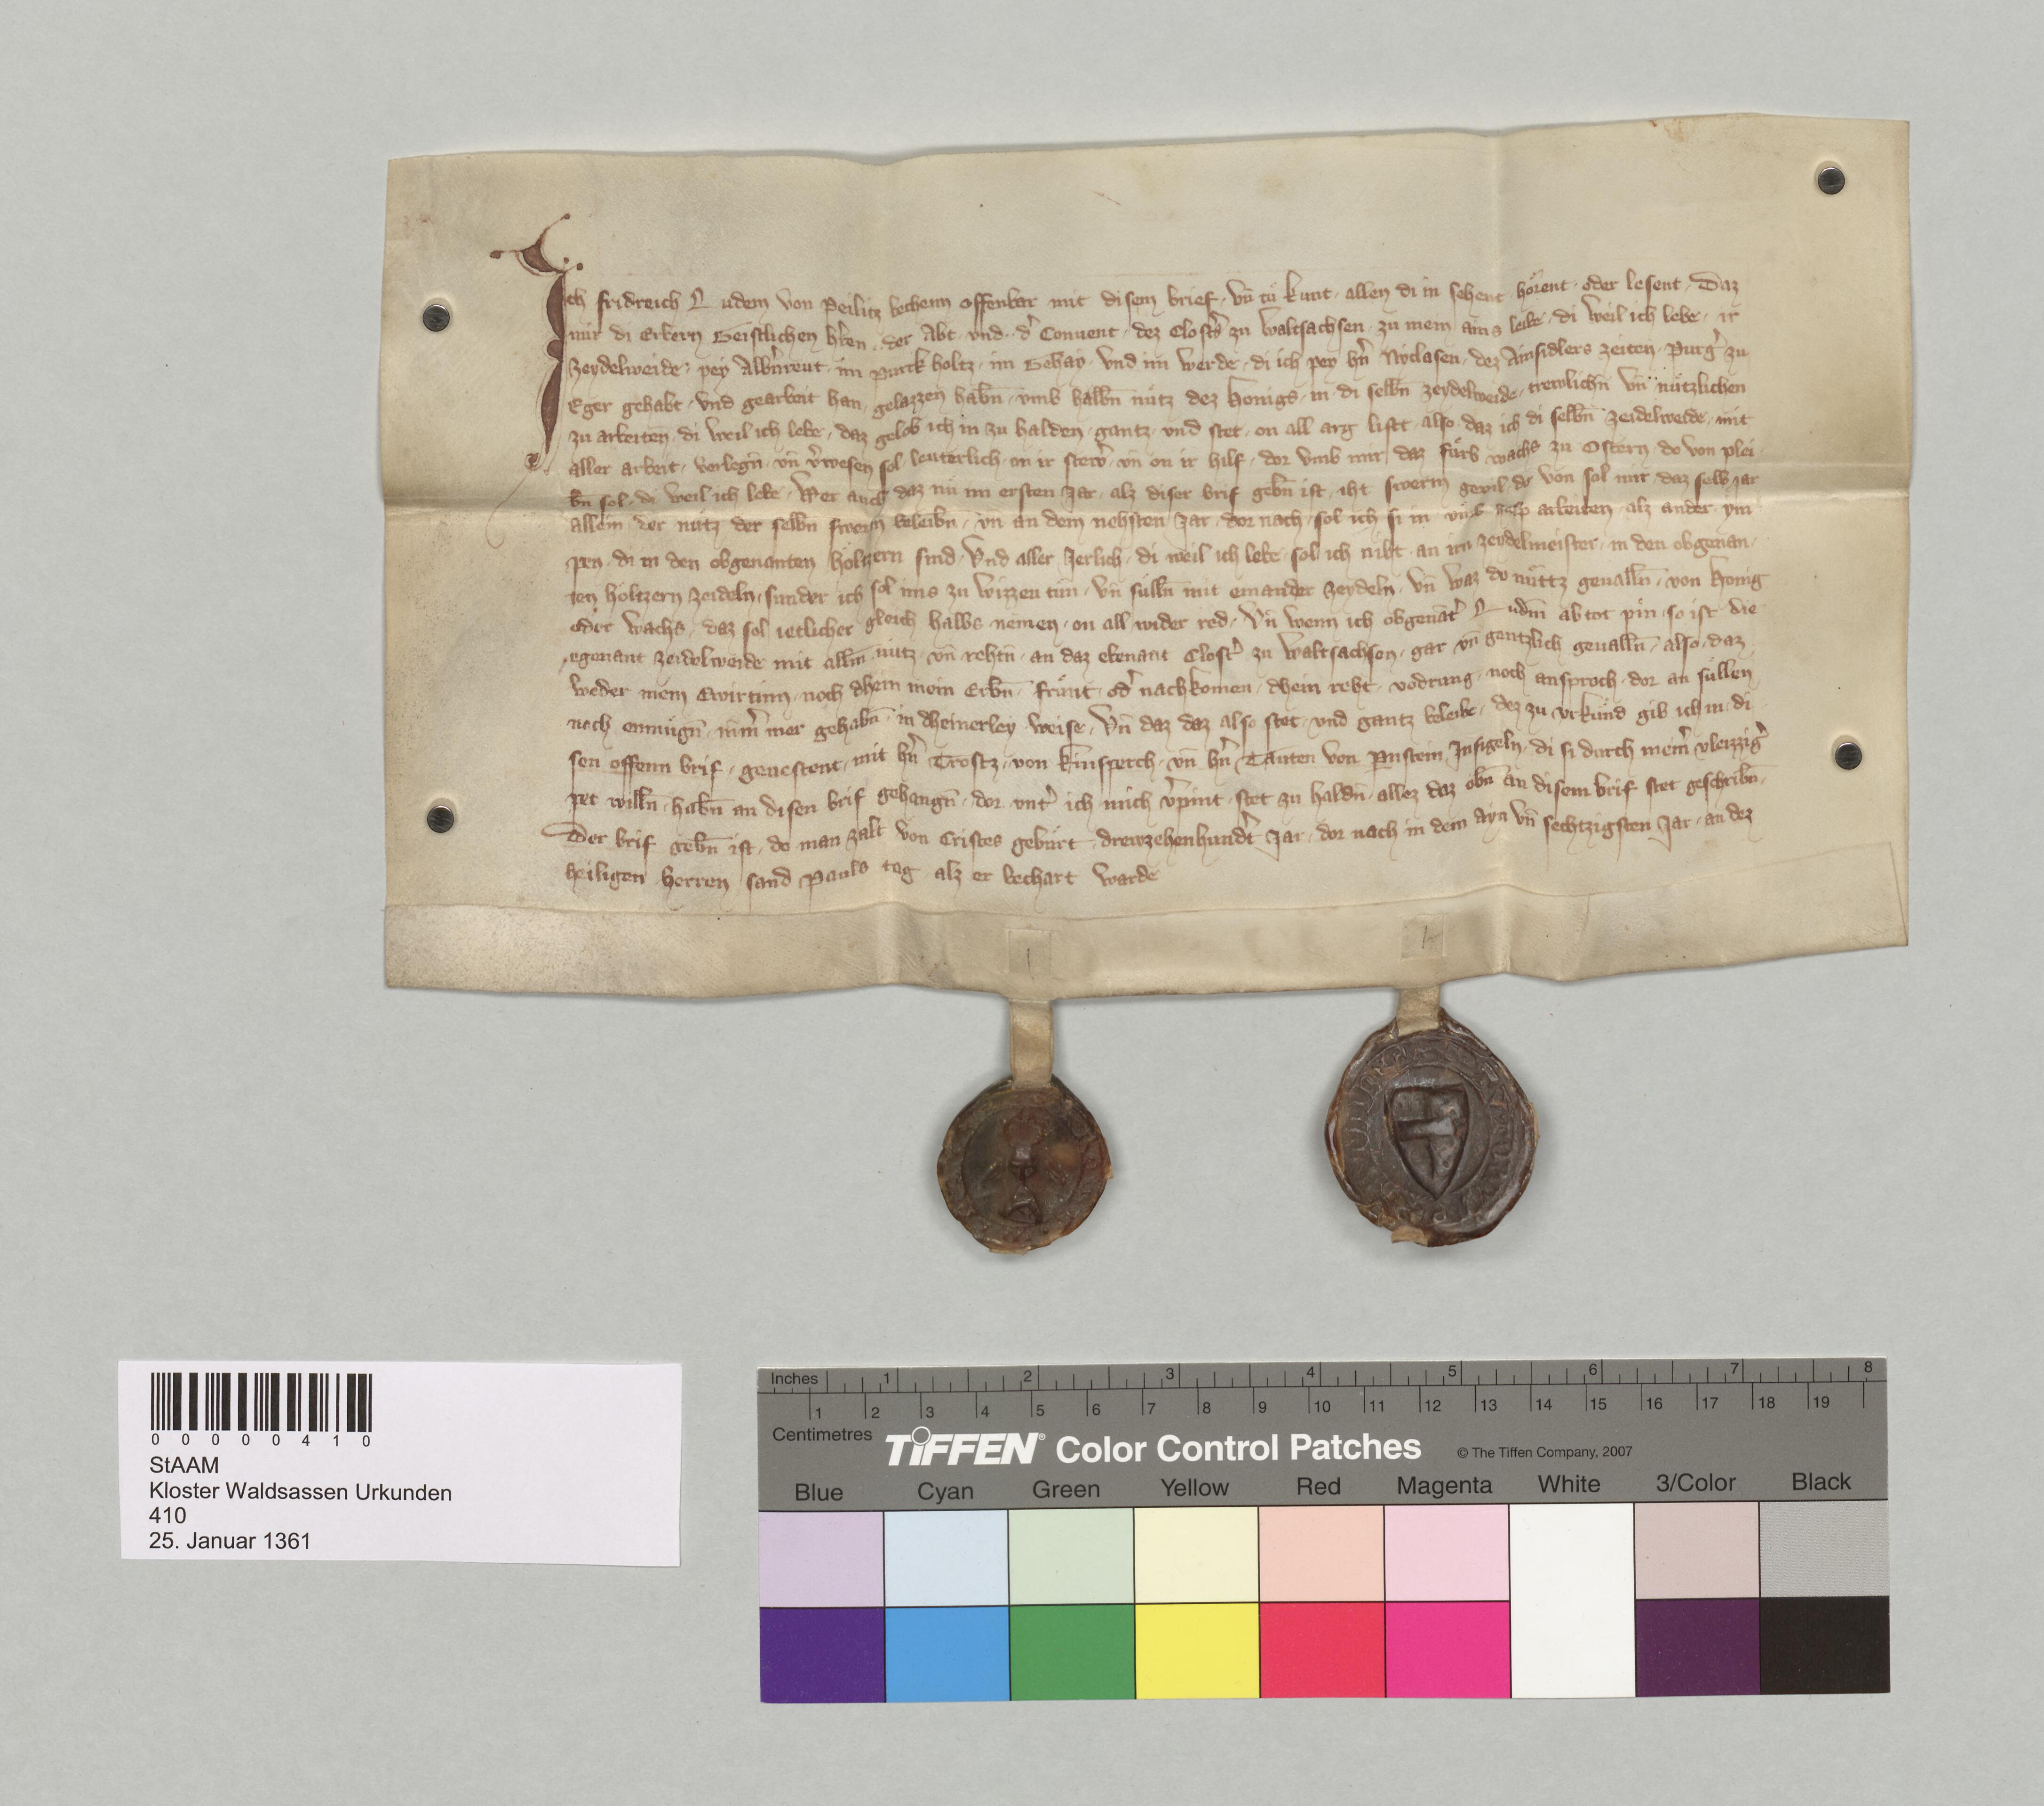 Ich fridreich Ludem von Peilitz bechenn offenbar mit disem brief · vn̄ tů kunt · allen di in sehent · hörent · oder lesent · Daz
mir di Erbern Geistlichen h̄ren · der Abt · vnd · d̓ Conuent · dez Clost̓s zu Waltsachsen · zu mein ains leibe · di weil ich lebe · ir
Zeydelweide · pey Alb̄nreut · im purckholtz · im Gehay · vnd im werde · di ich pey h̄n Nyclasen · dez Ainsidlers zeiten · Purg̓ zu
Eger gehabt · vnd gearbeit han · gelazzen habn̄ · vmb halbn̄ nůtz dez Honigs · in di selbn̄ zeydelweide · trewlichn̄ vn̄ nützlichen
zu arbeiten · di weil ich lebe · daz gelob ich in zu halden · gantz · vnd stet · on all arg listt · also · daz ich di selbn̄ zeidelweide · mit
aller arbeit · verlegn̄ · vn̄ v̓wesen sol · leuterlich · on ir stew̓ · vn̄ on ir hilf · dor vmb mir daz fürb wachs zu Ostern · do von plei
bn̄ sol · di weil ich lebe · Wer auch daz nu im ersten Jar · alz diser brif gebn̄ ist · iht swerm gevil · do von sol mir · daz selb jar
allein der nůtz der selbn̄ swerm beleibn̄ · vn̄ an dem nehsten Jar · dor nach · sol ich si in arbeiten · alz ander ym
pen · di in den obgenanten höltzern sind · Vnd aller Jerlich · di weil ich lebe · sol ich niht · an im zeydelmeister · in den obgenan
ten höltzern zeideln · sunder ich sol ims zu wizzen tun · vn̄ süllen mit einander zeydeln · vn̄ waz do nůttz geualln̄ · von honig
oder wachs · daz sol ietlicher gleich halbs nemen · on all wider red · Vn̄ wenn ich obgenāt̓ Ludm̄ ab tot pin · so ist die
egenant zeidelweide mit alln̄ nůtz · vn̄ rehtn̄ · an daz ebenant Clost̓ zu Waltsachsen · gar vn̄ gentzlich geualln̄ · also · daz
weder mein Ewirtinn · noch dhein mein Erbn̄ · frünt · od̓ nachkomen · dhein reht · vodrung · noch ansproch · dor an süllen
noch enmügn̄ · nim̄ mer gehabn̄ · in dheinerley weise · Vn̄ daz daz also stet · vnd gantz beleibe · dez zu vrkünd gib ich in · di
sen offenn brif · geuestent · mit h̄n Trostz · von kinsperch · vn̄ h̄n Tauten von Pnstein Insigeln · di si durch meīn vleizzig̓
pet willn̄ · habn̄ an disen brif gehangn̄ · dor vnt̓ ich mich v̓pint · stet zu haldn̄ · allez daz obn̄ an disem brif stet geschribn̄ ·
Der brif gebn̄ ist · do man zalt von Cristes gebürt · drewzehenhund̓t Jar · dor nach in dem Ayn vn̄ sechtzigsten Jar · an dez
heiligen herren sand Pauls tag alz er bechart warde
1
2
00000410
StAAM
Kloster Waldsassen Urkunden
410
25. Januar 1361
Inches 1 2 3 4 5 6 7 8
1 2 3 4 5 6 7 8 9 10 11 12 13 14 15 16 17 18 19
Centimetres
TIFFEN® Color Control Patches © The Tiffen Company, 2007
Blue Cyan Green Yellow Red Magenta White 3/Color Black